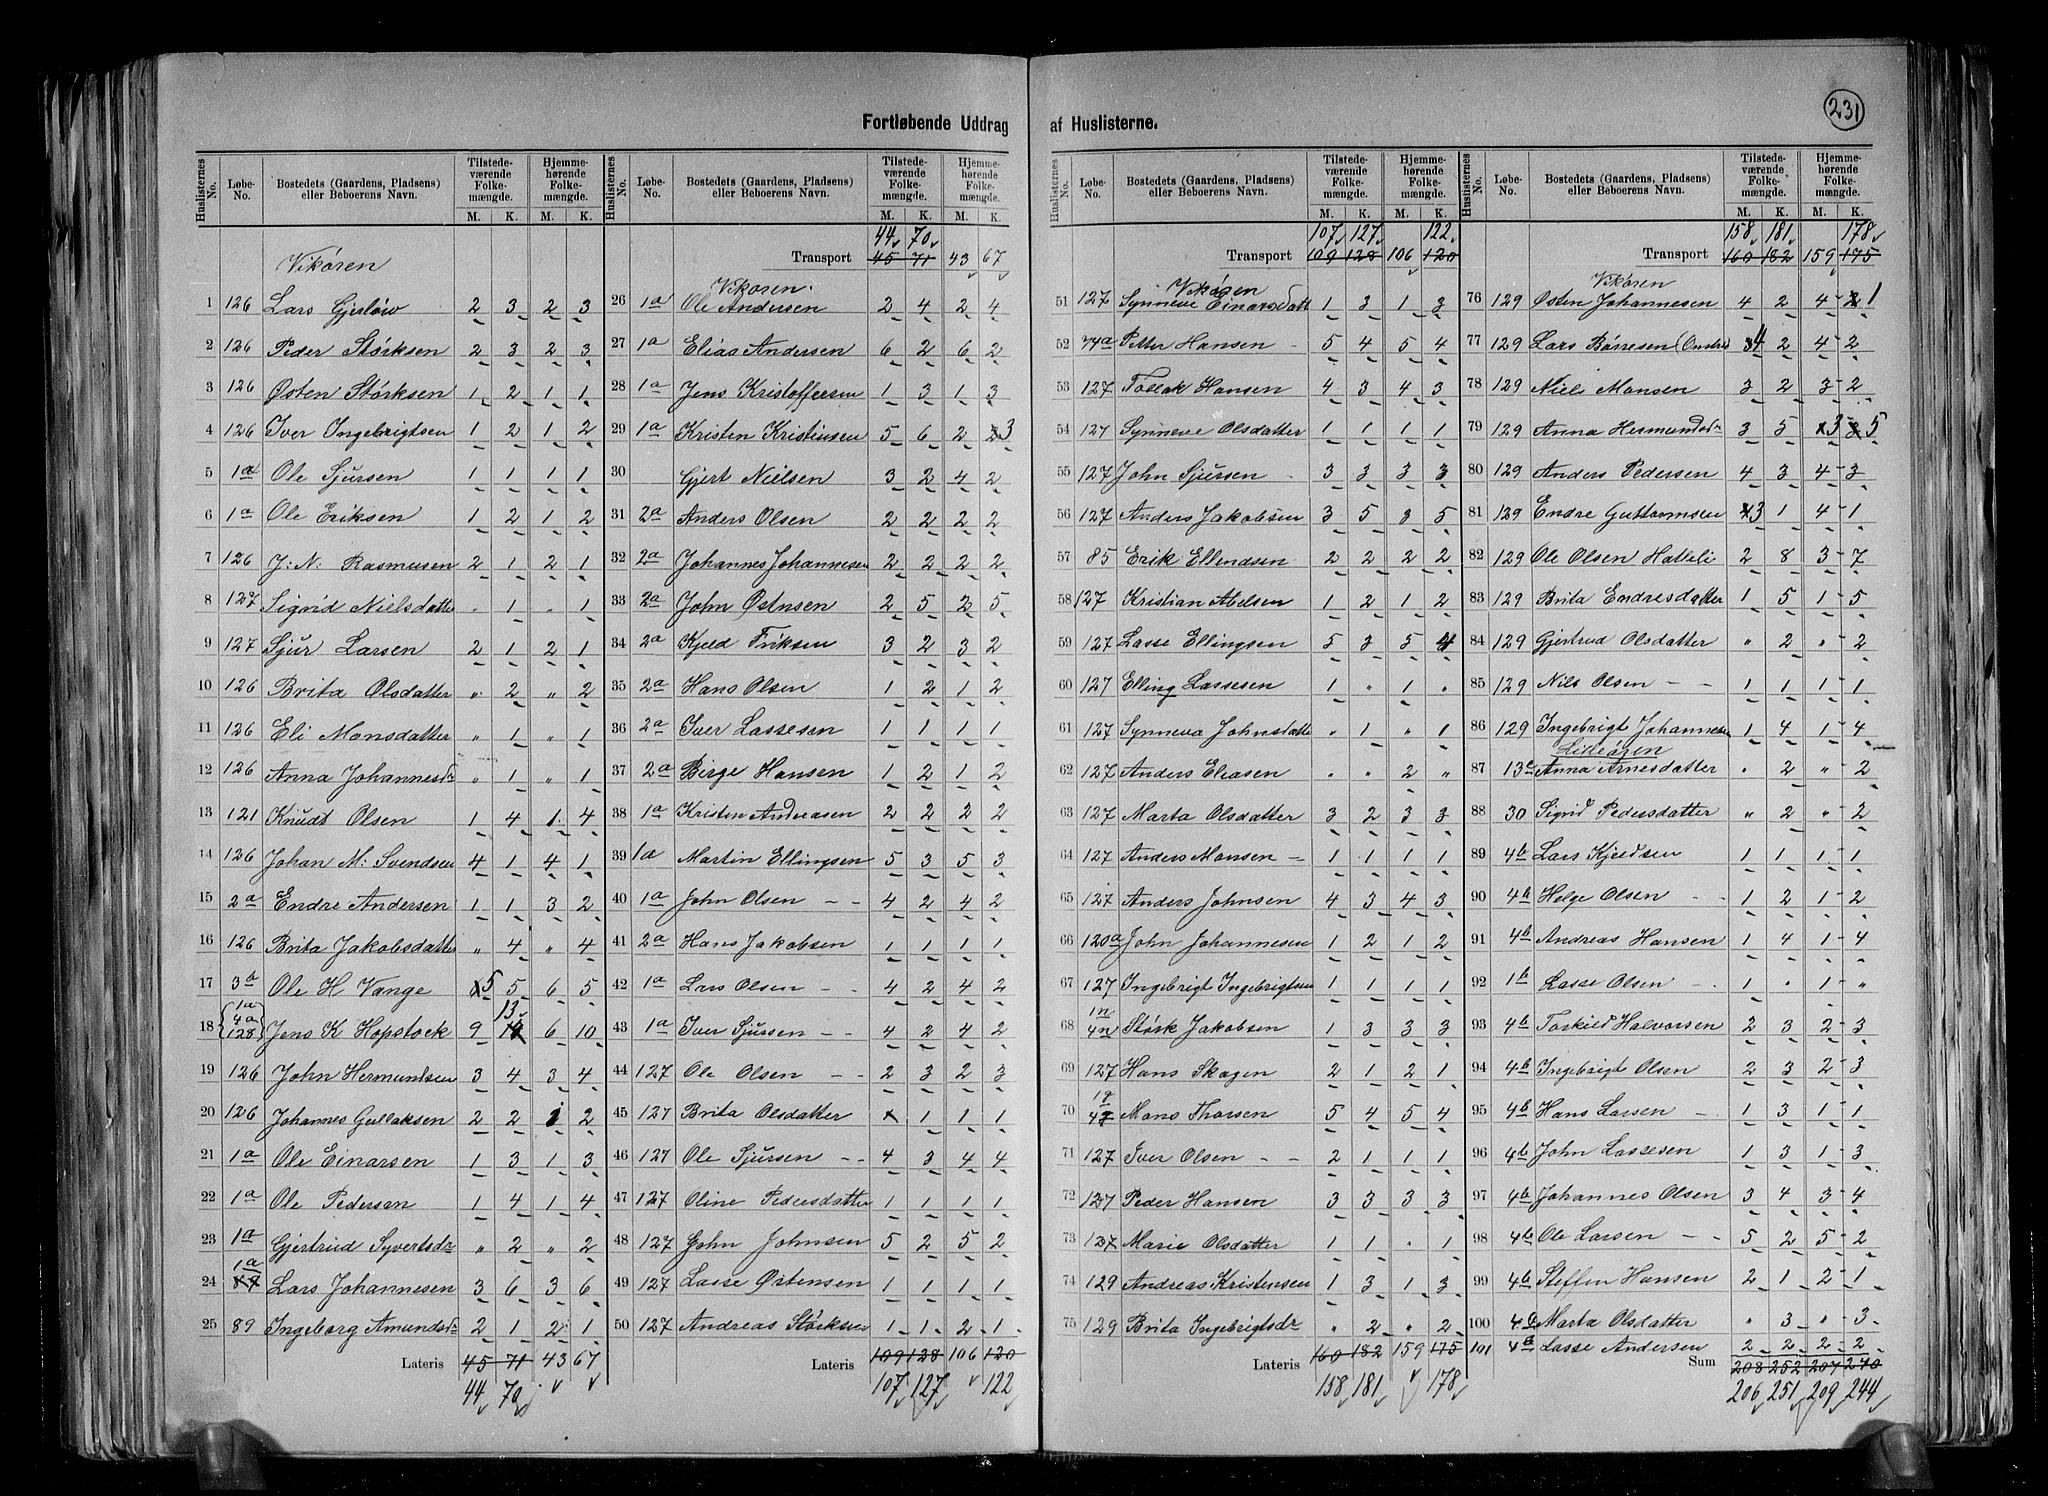 231
Fortløbende Uddrag af Huslisterne.
Huslisternes No. | Løbe-No. | Bostedets (Gaardens, Pladsens) eller Beboerens Navn. | Tilstedeværende Folkemængde. M. K. | Hjemmehørende Folkemængde. M. K.
Vikøren
1 126 Lars Gjerløw 2 3 2 3
2 126 Peder Størksen 2 3 2 3
3 126 Østen Størksen 1 2 1 1
4 126 Iver Ingebrigtsen 1 2 1 2
5 1a Ole Sjursen 1 1 1 1
6 1a Ole Eriksen 1 2 1 2
7 126 J: N: Rasmusen 2 1 2 1
8 127 Sigrid Nielsdatter " 1 " 1
9 127 Sjur Larsen 2 1 2 1
10 126 Brita Olsdatter " 2 " 2
11 126 Eli Monsdatter " 1 " 1
12 126 Anna Johannesdr " 1 " 1
13 121 Knudt Olsen 1 4 1 4
14 126 Johan M: Svendsen 4 1 4 1
15 2a Endre Andersen 1 1 3 2
16 126 Brita Jakobsdatter " 4 " 4
17 3a Ole H Vange 5 5 6 5
18 1a 4a 128 Jens K Hopstock 9 13 6 10
19 126 John Hermundsen 3 4 3 4
20 126 Johannes Gullaksen 2 2 1 2
21 1a Ole Einarsen 1 3 1 3
22 1a Ole Pedersen 1 4 1 4
23 1a Gjertrud Syvertsdr " 2 " 2
24 1a Lars Johannesen 3 6 3 6
25 89 Ingeborg Amundsdr 2 1 2 1
Lateris 45 71 43 67
44 70
Huslisternes No. | Løbe-No. | Bostedets (Gaardens, Pladsens) eller Beboerens Navn. | Tilstedeværende Folkemængde. M. K. | Hjemmehørende Folkemængde. M. K.
44 70
Transport 45 71 43 67
Vikøren.
26 1a Ole Andersen 2 4 2 4
27 1a Elias Andersen 6 2 6 2
28 1a Jens Kristoffersen 1 3 1 3
29 1a Kristen Kristensen 5 6 2 3
30 Gjert Nielsen 3 2 4 2
31 2a Anders Olsen 2 2 2 2
32 2a Johannes Johannesen 2 2 2 2
33 2a John Østnsen 2 5 2 5
34 2a Kjeld Eriksen 3 2 3 2
35 2a Hans Olsen 1 2 1 2
36 2a Iver Lassesen 1 1 1 1
37 2a Birge Hansen 1 2 1 2
38 1a Kristen Andreasen 2 2 2 2
39 1a Martin Ellingsen 5 3 5 3
40 1a John Olsen 4 2 4 2
41 2a Hans Jakobsen 1 1 1 1
42 1a Lars Olsen 4 2 4 2
43 1a Iver Sjursen 4 2 4 2
44 127 Ole Olsen 2 3 2 3
45 127 Brita Olsdatter 1 1 1
46 127 Ole Sjursen 4 3 4 4
47 127 Oline Pedersdatter 1 1 1 1
48 127 John Johnsen 5 2 5 2
49 127 Lasse Østensen 1 1 1 1
50 127 Andreas Størksen 1 1 2 1
Lateris 109 128 106 120
107 127 122
Huslisternes No. | Løbe-No. | Bostedets (Gaardens, Pladsens) eller Beboerens Navn. | Tilstedeværende Folkemængde. M. K. | Hjemmehørende Folkemængde. M. K.
107 127 122
Transport 109 128 106 120
Vikøren
51 127 Synneve Einarsdatt 1 3 1 3
52 74a Petter Hansen 5 4 5 4
53 127 Tollak Hansen 4 3 4 3
54 127 Synneve Olsdatter 1 1 1 1
55 127 John Sjursen 3 3 3 3
56 127 Anders Jakobsen 3 5 3 5
57 85 Erik Ellendsen 2 2 2 2
58 127 Kristian Abelsen 1 2 1 2
59 127 Lasse Ellingsen 5 3 5 4
60 127 Elling Lassesen 1 " 1 "
61 127 Synneva Johnsdatte " 1 " 1
62 127 Anders Eliasen " " 2 "
63 127 Marta Olsdatter 3 2 3 3
64 127 Anders Monsen 1 1 1 1
65 127 Anders Johnsen 4 3 4 3
66 120a John Johannesen 1 2 1 2
67 127 Ingebrigt Ingebrigtsen 1 1 1 1
68 1n 4n Størk Jakobsen 1 3 3 3
69 127 Hans Skagen 2 1 2 1
70 Mons Thorsen 5 4 5 4
71 127 Iver Olsen 2 1 1 1
72 127 Peder Hansen 3 3 3 3
73 127 Marie Olsdatter 1 1 " 1
74 129 Andreas Kristensen 1 3 1 3
75 129 Brita Ingebrigtsdr " 2 " 2
Lateris 160 182 159 175
158 181 178
Huslisternes No. | Løbe-No. | Bostedets (Gaardens, Pladsens) eller Beboerens Navn. | Tilstedeværende Folkemængde. M. K. | Hjemmehørende Folkemængde. M. K.
158 181 178
Transport 160 182 159 175
Vikøren
76 129 Østen Johannesen 4 2 4 1
77 129 Lars Børresen 4 2 4 2
78 129 Niels Monsen 3 2 3 2
79 129 Anna Hermundsdr 3 5 3 5
80 129 Anders Pedersen 4 3 4 3
81 129 Endre Guttormsen 3 1 4 1
82 129 Ole Olsen Hatteli 2 8 3 7
83 129 Brita Endresdatter 1 5 1 5
84 129 Gjertrud Olsdatter " 2 " 2
85 129 Nils Olsen 1 1 1 1
86 129 Ingebrigt Johannesen 1 4 1 4
Lilleøren
87 13a Anna Arnesdatter " 2 " 2
88 30 Sigrid Pedersdatter " 2 " 2
89 4b Lars Kjeldsen 1 1 1 1
90 4b Helge Olsen 1 2 1 2
91 4b Andreas Hansen 1 4 1 4
92 1b Lasse Olsen 1 " 1 "
93 4b Torkild Halvorsen 2 3 2 3
94 4b Ingebrigt Olsen 2 3 2 3
95 4b Hans Larsen 1 3 1 1
96 4b John Lassesen 1 3 1 3
97 4b Johannes Olsen 3 4 3 4
98 4b Ole Larsen 5 2 5 2
99 4b Steffen Hansen 2 1 2 1
100 4b Marta Olsdatter " 3 " 3
101 4b Lasse Andersen 2 2 2 2
Sum 208 252 207 240
206 251 209 244